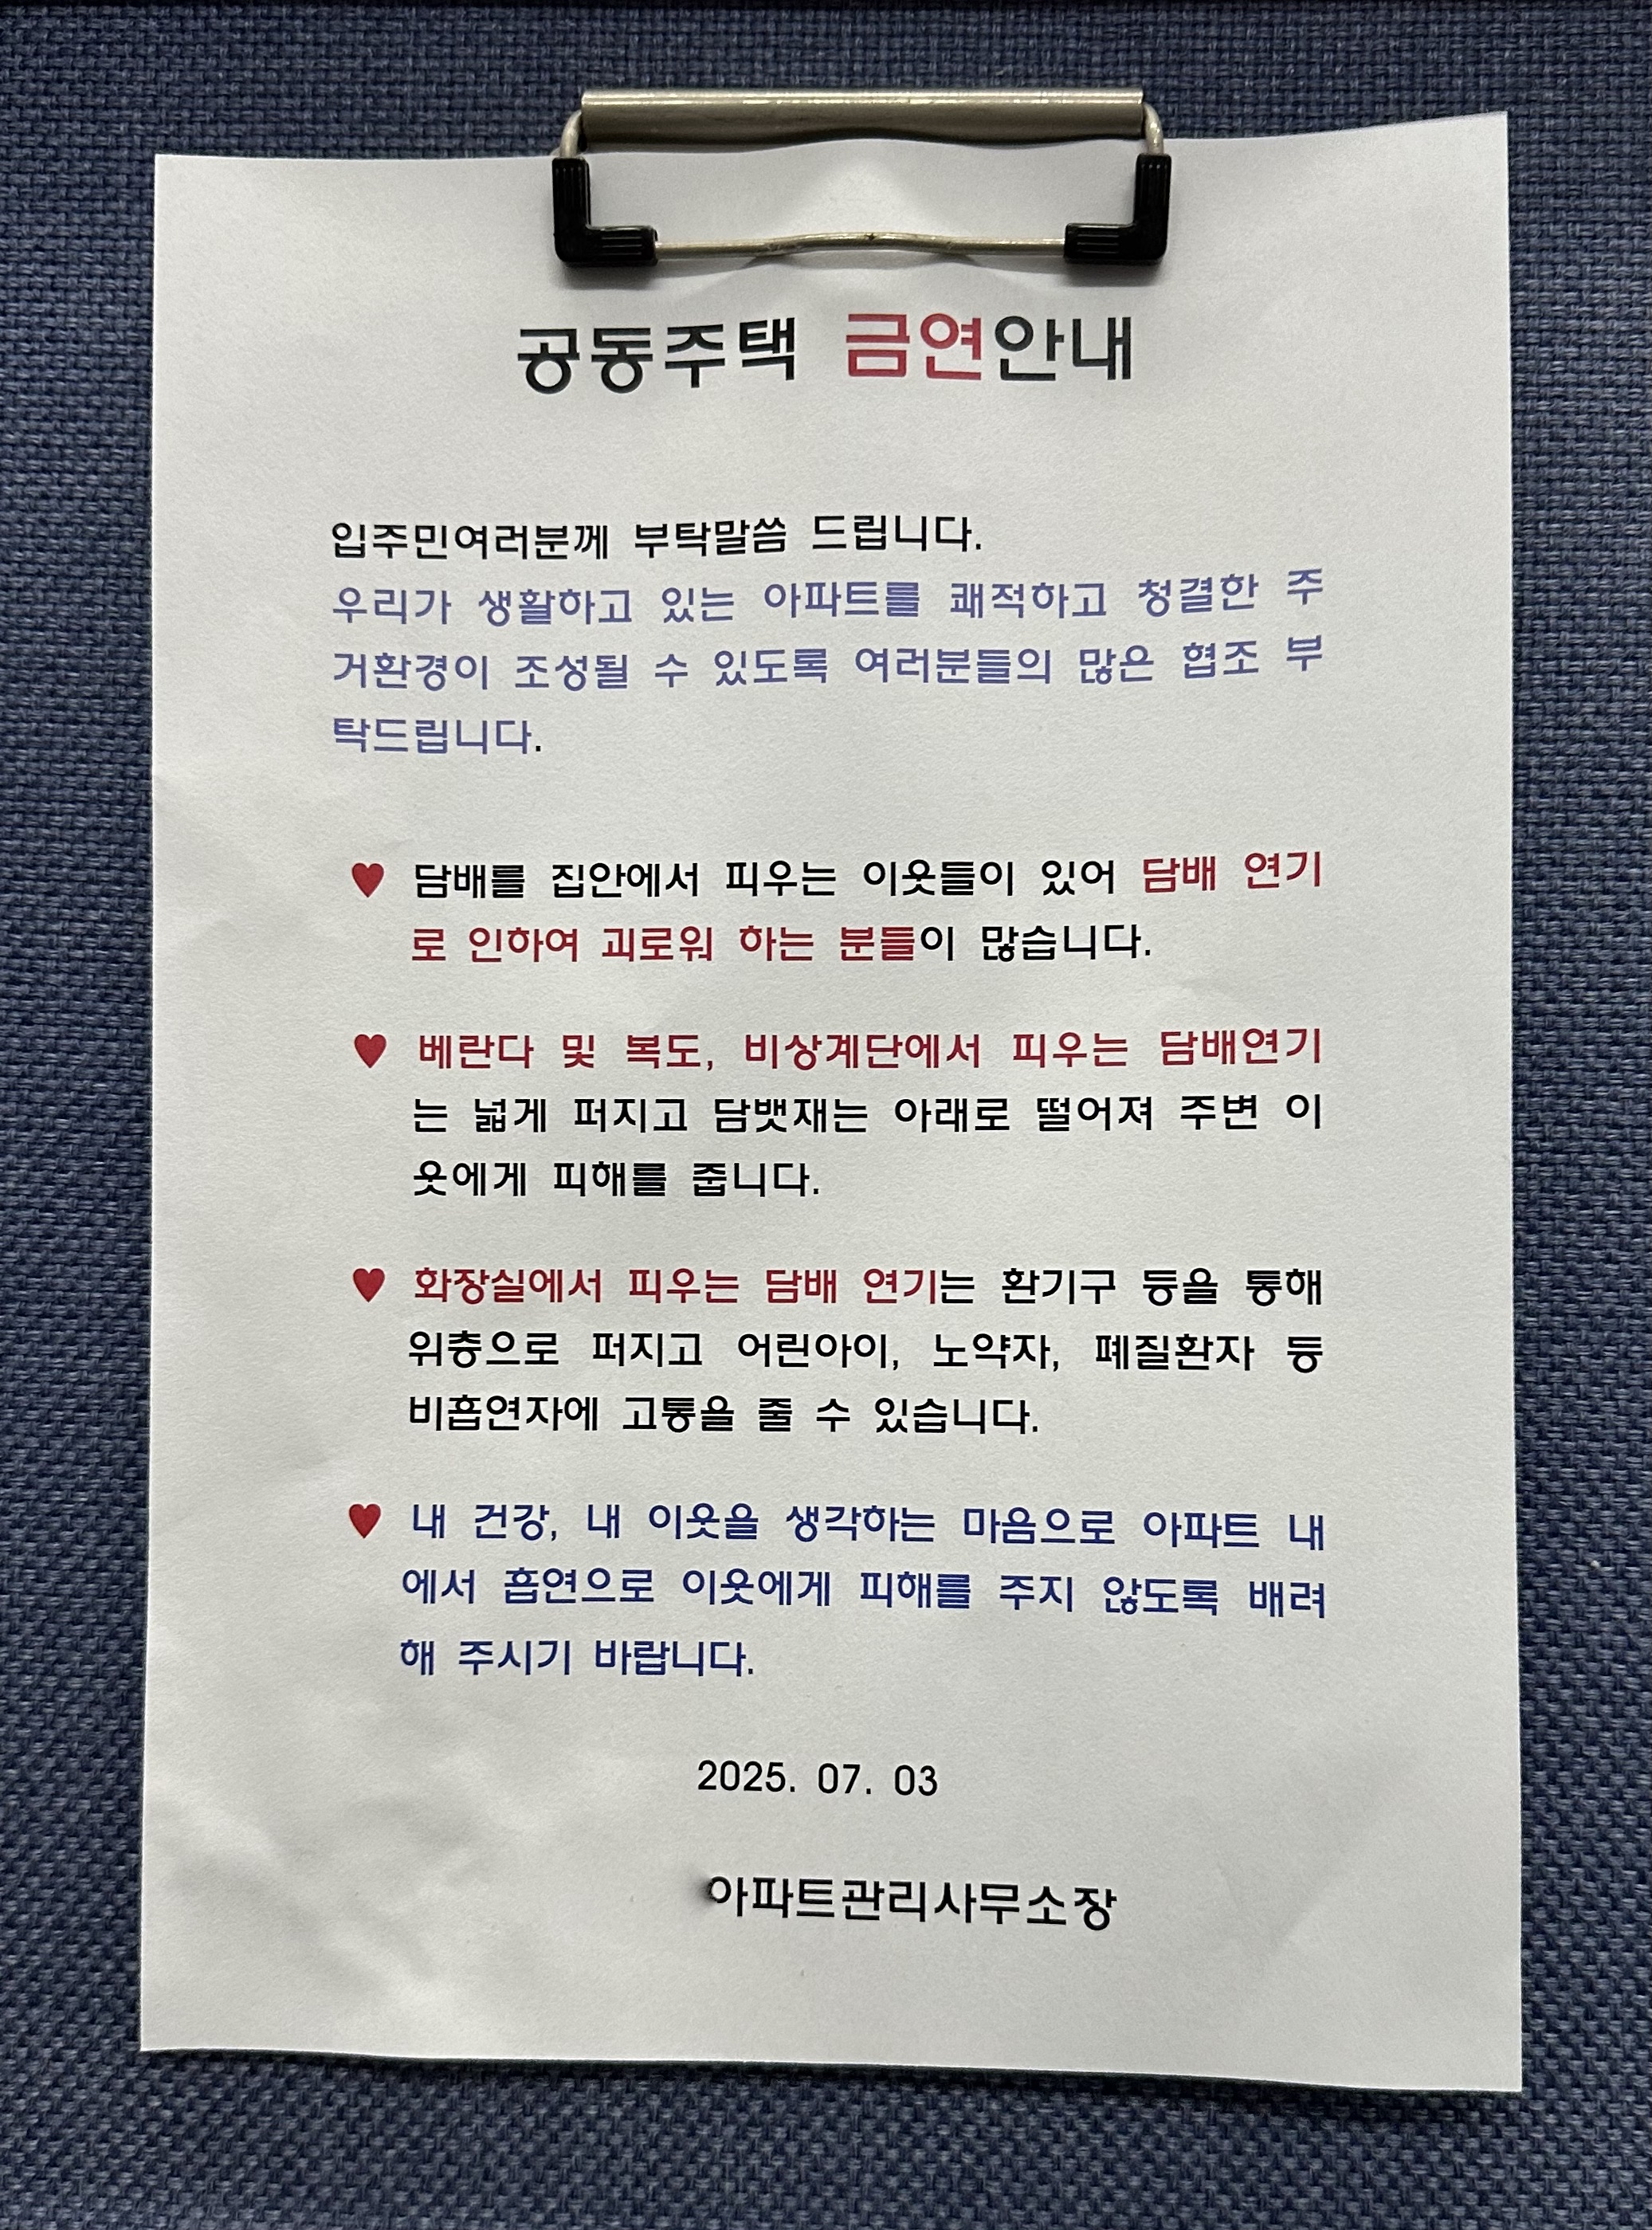 공동주택 금연안내
입주민여러분께 부탁말씀 드립니다.
우리가 생활하고 있는 아파트를 쾌적하고 청결한 주
거환경이 조성될 수 있도록 여러분들의 많은 협조 부
탁드립니다.
♥ 담배를 집안에서 피우는 이웃들이 있어 담배 연기
로 인하여 괴로워 하는 분들이 많습니다.
♥ 베란다 및 복도, 비상계단에서 피우는 담배연기
는 넓게 퍼지고 담뱃재는 아래로 떨어져 주변 이
웃에게 피해를 줍니다.
♥ 화장실에서 피우는 담배 연기는 환기구 등을 통해
위층으로 퍼지고 어린아이, 노약자, 폐질환자 등
비흡연자에 고통을 줄 수 있습니다.
♥ 내 건강, 내 이웃을 생각하는 마음으로 아파트 내
에서 흡연으로 이웃에게 피해를 주지 않도록 배려
해 주시기 바랍니다.
2025. 07. 03
아파트관리사무소장